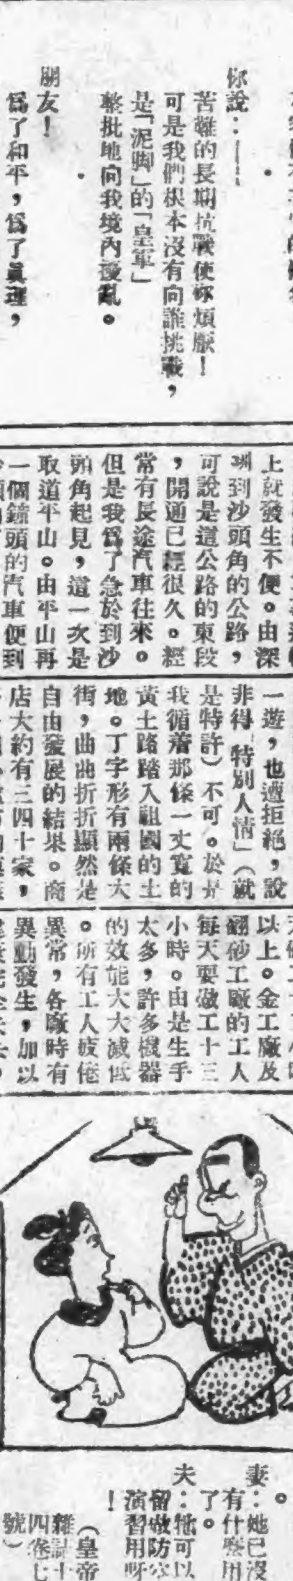 你說：——
苦難的長期抗戰使你煩厭！
可是我們根本沒有向誰挑戰，
是「泥脚」的「皇軍」
整批地向我境內擾亂。
朋友！
爲了和平，爲了眞理，
上就發生不便。由深
圳到沙頭角的公路，
可說是這公路的東段
，開通已經很久。經
常有長途汽車往來。
但是我爲了急於到沙
頭角起見，這一次是
取道平山。由平山再
一個鐘頭的汽車便到
一遊，也遭拒絶，說
非得「特別人情」（就
是特許）不可。於是
我循着那條一丈寬的
黃土路踏入祖國的土
地。丁字形有兩條大
街，曲曲折折顯然是
自由發展的結果。商
店大約有三四十家，
以上。金工廠及
翻砂工廠的工人
每天要做工十三
小時。由是生手
太多，許多機器
的效能大大減低
。所有工人疲倦
異常，各廠時有
異動發生，加以
妻：她已沒
有什麼用
了。
夫：牠可以
留做防空
演習用呀
！
（皇帝
雜誌十
四卷七
號）